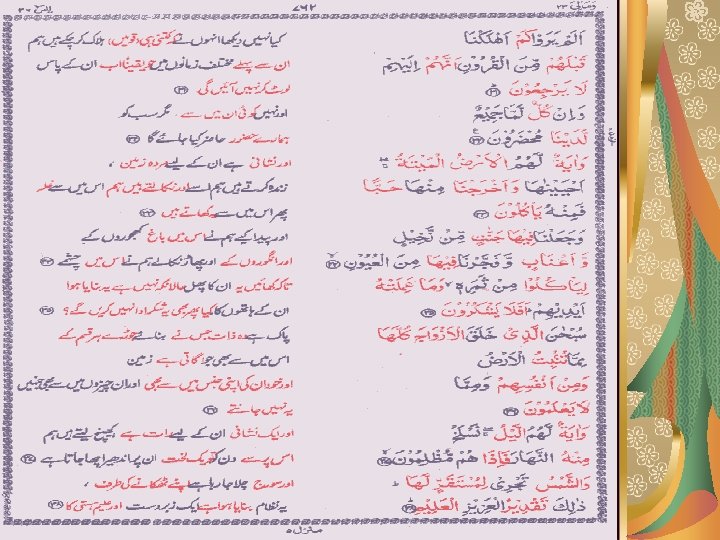 وَمَالِیَ ۲۳ ۷۶۲ یٰسٓ ۳۶
اَلَمْ يَرَوْا كَمْ اَهْلَكْنَا کیا نہیں دیکھا انہوں نے کتنی ہی (قومیں) ہلاک کر چکے ہیں ہم
قَبْلَهُمْ مِّنَ الْقُرُوْنِ اَنَّهُمْ اِلَيْهِمْ ان سے پہلے مختلف زمانوں میں یقیناً اب ان کے پاس
لَا يَرْجِعُوْنَ ﴿۳۱﴾ لوٹ کر نہیں آئیں گی ﴿۳۱﴾
وَاِنْ كُلٌّ لَّمَّا جَمِيْعٌ اور نہیں کوئی ان میں سے مگر سب کو
لَّدَيْنَا مُحْضَرُوْنَ ﴿۳۲﴾ ہمارے حضور حاضر کیا جائے گا ﴿۳۲﴾
وَاٰيَةٌ لَّهُمُ الْاَرْضُ الْمَيْتَةُ اور نشانی ہے ان کے لیے مردہ زمین ،
اَحْيَيْنٰهَا وَاَخْرَجْنَا مِنْهَا حَبًّا زندہ کرتے ہیں ہم اسے اور نکالتے ہیں ہم اس میں سے غلہ
فَمِنْهُ يَاْكُلُوْنَ ﴿۳۳﴾ پھر اس میں سے یہ کھاتے ہیں ﴿۳۳﴾
وَجَعَلْنَا فِيْهَا جَنّٰتٍ مِّنْ نَّخِيْلٍ اور پیدا کیے ہم نے اس میں باغ کھجوروں کے
وَّاَعْنَابٍ وَّفَجَّرْنَا فِيْهَا مِنَ الْعُيُوْنِ ﴿۳۴﴾ اور انگوروں کے اور پھاڑ نکالے ہم نے اس میں چشمے ﴿۳۴﴾
لِيَاْكُلُوْا مِنْ ثَمَرِهٖ وَمَا عَمِلَتْهُ تاکہ کھائیں یہ ان کا پھل حالانکہ نہیں ہے یہ بنایا ہوا
اَيْدِيْهِمْ اَفَلَا يَشْكُرُوْنَ ﴿۳۵﴾ ان کے ہاتھوں کا کیا پھر بھی یہ شکر ادا نہیں کریں گے؟ ﴿۳۵﴾
سُبْحٰنَ الَّذِىْ خَلَقَ الْاَزْوَاجَ كُلَّهَا پاک ہے وہ ذات جس نے بنائے جوڑے ہر قسم کے
مِمَّا تُنْۢبِتُ الْاَرْضُ اس میں سے بھی جو اگاتی ہے زمین
وَمِنْ اَنْفُسِهِمْ وَمِمَّا اور خود ان کی اپنی جنس میں سے بھی اور ان چیزوں میں سے بھی جنہیں
لَا يَعْلَمُوْنَ ﴿۳۶﴾ یہ نہیں جانتے ﴿۳۶﴾
وَاٰيَةٌ لَّهُمُ الَّيْلُ نَسْلَخُ اور ایک نشانی ان کے لیے رات ہے کھینچ لیتے ہیں ہم
مِنْهُ النَّهَارَ فَاِذَا هُمْ مُّظْلِمُوْنَ ﴿۳۷﴾ اس پر سے دن کو تو یک لخت ان پر اندھیرا چھا جاتا ہے ﴿۳۷﴾
وَالشَّمْسُ تَجْرِىْ لِمُسْتَقَرٍّ لَّهَا اور سورج چلا جا رہا ہے اپنے ٹھکانے کی طرف ،
ذٰلِكَ تَقْدِيْرُ الْعَزِيْزِ الْعَلِيْمِ ﴿۳۸﴾ یہ نظام بنایا ہوا ہے ایک زبردست اور علیم ہستی کا ﴿۳۸﴾
منزل ۵